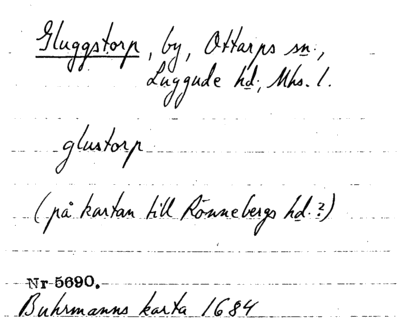 Gluggstorp, by, Ottarps sn.,
Luggude hd, Mhs. l.
glustorp
(på kartan till Rönnebergs hd.?)
Nr 5690.
Buhrmanns karta 1684